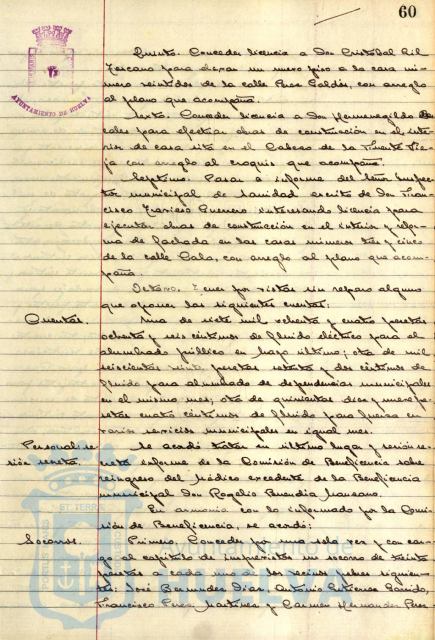 60
AYUNTAMIENTO DE HUELVA
Quinto. Conceder licencia a Don Cristobal Gil
Toscano para elevar un nuevo piso a la casa nú-
mero veintidos de la calle Perez Galdós, con arreglo
al plano que acompaña.
Sexto. Conceder licencia a Don Hermenegildo
cales para efectuar obras de construcción en el inte-
rior de casa sita en el Cabezo de la Fuente Vie-
ja con arreglo al croquis que acompaña.
Septimo. Pasar a informe del Señor Inspec-
tor municipal de Sanidad escrito de Don Fran-
cisco Guerrero interesando licencia para
ejecutar obras de construcción en el interior y refor-
ma de fachada en las casas números tres y cinco
de la calle Cala, con arreglo al plano que acom-
paña.
Octavo. Tener por vistas sin reparo alguno
que oponer las siguientes cuentas:
Cuentas.
Una de siete mil ochenta y cuatro pesetas
ochenta y seis céntimos de flúido eléctrico para el
alumbrado público en Mayo último; otra de mil
seiscientas veinte pesetas setenta y dos céntimos de
flúido para alumbrado de dependencias municipales
en el mismo mes; otra de quinientas diez y nueve pe-
setas cuatro céntimos de flúido para fuerza en
varios servicios municipales en igual mes.
Personal se-
sión secreta.
Se acordó tratar en último lugar y sesión se-
creta informe de la Comisión de Beneficencia sobre
reingreso del Médico excedente de la Beneficencia
municipal Don Rogelio Buendia Manzano.
En armonia con lo informado por la Comi-
sión de Beneficencia, se acordó:
Socorros.
Primero. Conceder por una sola vez y con car-
go al capítulo de imprevistos un socorro de treinta
pesetas a cada uno de los vecinos pobres siguien-
tes: José Bermudez Diaz, Antonio Gutierrez Garrido,
Francisco Perez Martinez y Carmen Hernandez Perez
HUELVA